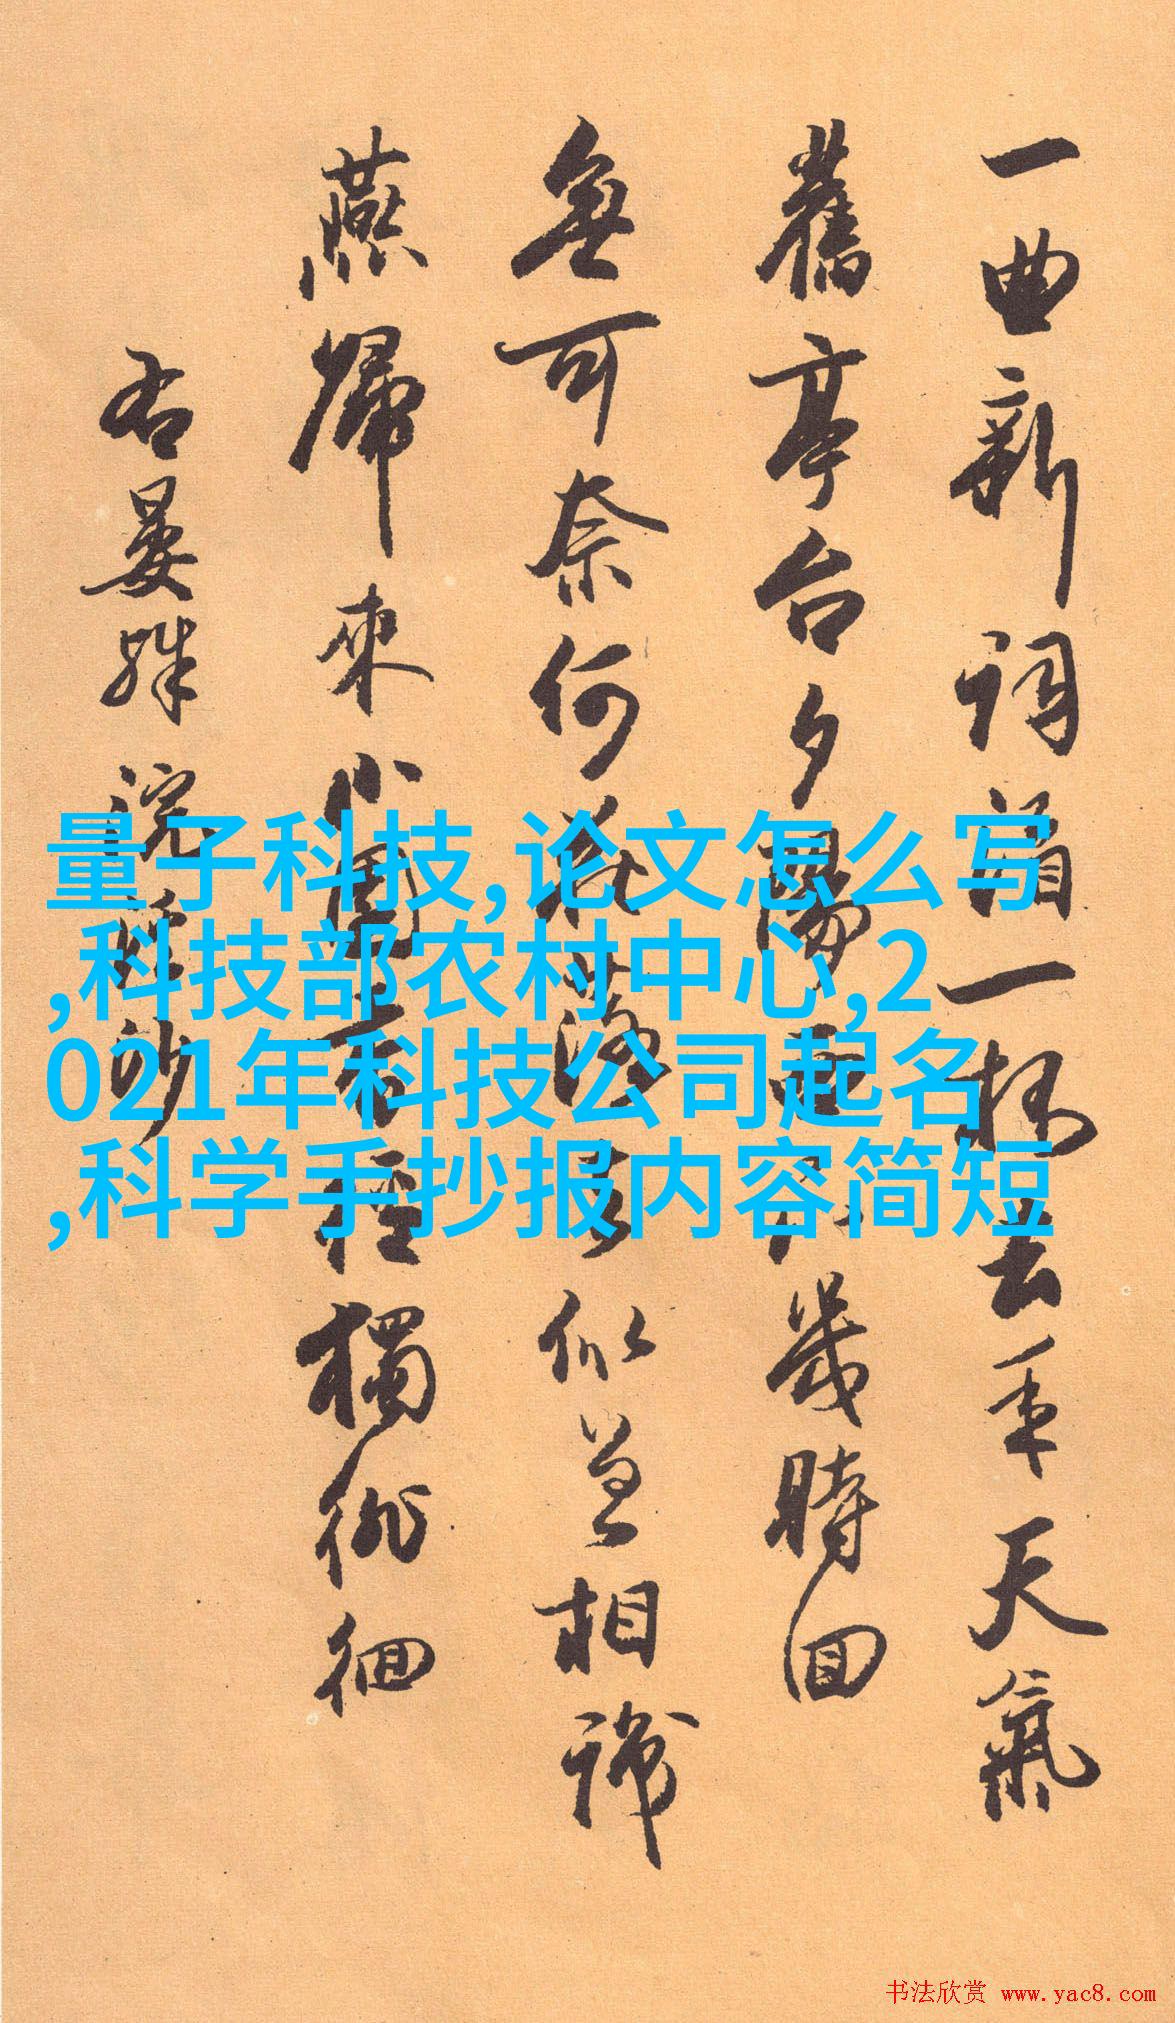 一曲新詞酒一杯去年天氣
舊亭台夕陽西下幾時回
無可奈何花落去似曾相識
燕歸來小園香徑獨徘徊
右晏殊浣溪沙
量子科技,论文怎么写
,科技部农村中心,2
021年科技公司起名
,科学手抄报内容简短
书法欣赏 www.yac8.com